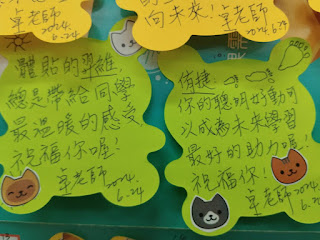 2024.
6.24
向未來!卓老師
2024.
6.24
體貼的羿維
總是帶給同學
最溫暖的感受
祝福你喔!
卓老師 2024.
6.24
侑捷
你的聰明好動可
以成為未來學習
最好的助力喔!
祝福你!
卓老師 2024.
6.24